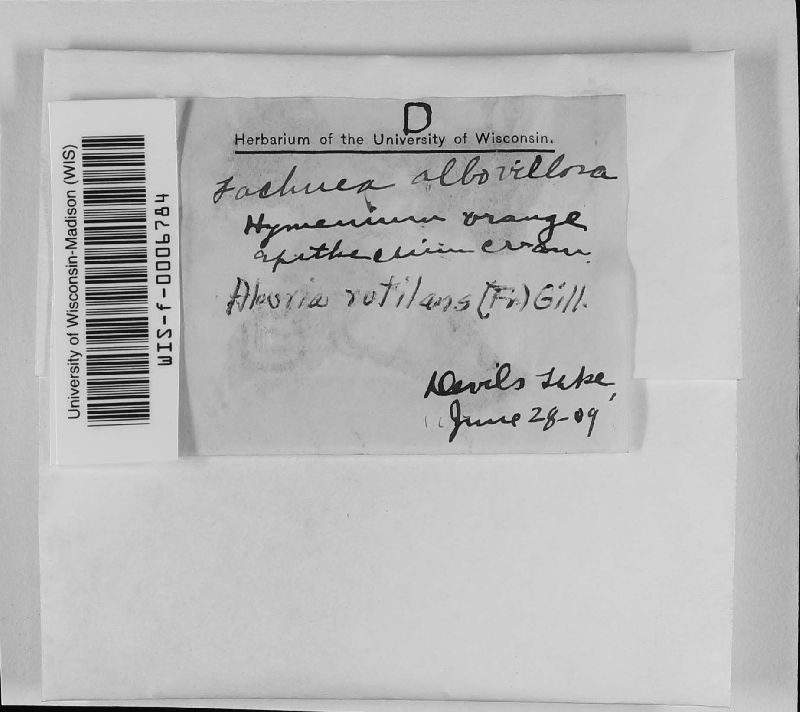 D
Herbarium of the University of Wisconsin.
Lachnea albovillosa
Hymenium orange
apothecium cream.
Aleuria rutilans (Fr) Gill.
Devils Lake,
June 28-09
University of Wisconsin-Madison (WIS)
WIS-f-0006784